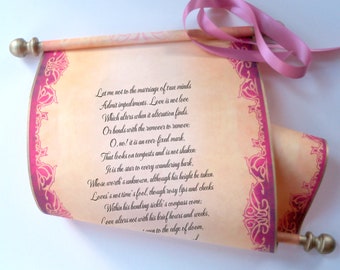 Let me not to the marriage of true minds
Admit impediments. Love is not love
Which alters when it alteration finds,
Or bends with the remover to remove:
O, no! it is an ever fixed mark,
That looks on tempests and is not shaken;
It is the star to every wandering bark,
Whose worth's unknown, although his height be taken.
Love's not time's fool, though rosy lips and cheeks
Within his bending sickle's compass come;
Love alters not with his brief hours and weeks,
to the edge of doom,